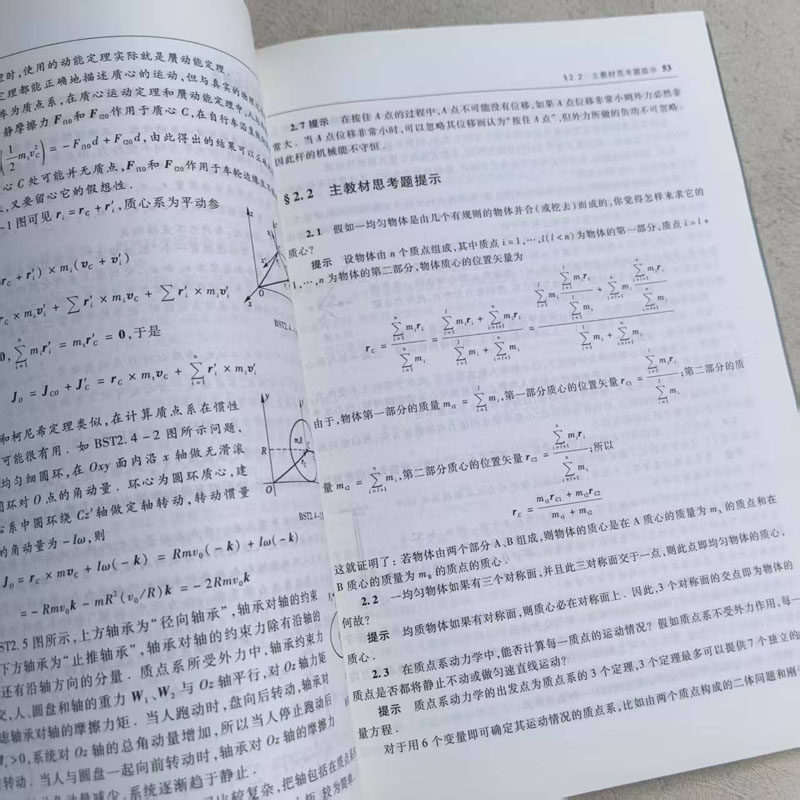 理时,使用的动能定理实际就是赝动能定理.
定理都能正确地描述质心的运动,但与真实的
称为质点系,在质心运动定理和赝动能定理中,人
静摩擦力 F_{f10} 和 F_{f20} 作用于质心 C,在自行车
(1/2 m_i v_C^2) = -F_{f10}d + F_{f20}d,由此得出的结果可以
心 C 处可能并无质点,F_{f10} 和 F_{f20} 作用于车轮边缘
,又要留心它的假想性.
-1 图可见 r_i = r_C + r_i′,质心系为平动参
r_C + r_i′) × m_i(v_C + v_i′)
r_C × m_i v_i′ + ∑ r_i′ × m_i v_C + ∑ r_i′ × m_i v_i′
0, ∑_{i=1}^{n} m_i r_i′ = m_i r_C′ = 0,于是
J_0 = J_{C0} + J_C′ = r_C × m_i v_C + ∑_{i=1}^{n} r_i′ × m_i v_i′
和柯尼希定理类似,在计算质点系在惯性
可能很有用. 如 BST2.4-2 图所示问题,
均匀细圆环,在 Oxy 面内沿 x 轴做无滑滚
圆环对 O 点的角动量. 环心为圆环质心,建
心系中圆环绕 Cz′ 轴做定轴转动,转动惯量
的角动量为 -Iω,则
J_0 = r_C × mv_C + Iω(-k) = Rmv_0(-k) + Iω(-k)
= -Rmv_0 k - mR^2(v_0/R)k = -2Rmv_0 k
ST2.5 图所示,上方轴承为“径向轴承”,轴承对轴的约束
下方轴承为“止推轴承”,轴承对轴的约束力除有沿轴的
还有沿轴方向的分量. 质点系所受外力中,轴承约束力
变,人、圆盘和轴的重力 W_1、W_2 与 Oz 轴平行,对 Oz 轴力矩
虑轴承对轴的摩擦力矩. 当人跑动时,盘向后转动,轴承对
>0,系统对 Oz 轴的总角动量增加,所以当人停止跑动后
转动. 当人与圆盘一起向前转动时,轴承对 Oz 轴的摩擦力
角动量减少,系统逐渐趋于静止.
比较复杂,把轴包括在质点系
较为简单.
z
O
x
BST2.4-
y
R
O
BST2.4-2
§2.2 主教材思考题提示 53
2.7 提示 在按住 A 点的过程中,A 点不可能没有位移,如果 A 点位移非常小则外力必然非
常大. 当 A 点位移非常小时,可以忽略其位移则认为“按住 A 点”,但外力所做的负功不可忽略.
因此杆的机械能不守恒.
§2.2 主教材思考题提示
2.1 假如一均匀物体是由几个有规则的物体并合(或挖去)而成的,你觉得怎样来求它的
质心?
提示 设物体由 n 个质点组成,其中质点 i=1,⋯,l(l<n)为物体的第一部分,质点 i=l+
1,⋯,n 为物体的第二部分,物体质心的位置矢量为
r_C = ∑_{i=1}^{n} m_i r_i / ∑_{i=1}^{n} m_i = (∑_{i=1}^{l} m_i r_i + ∑_{i=l+1}^{n} m_i r_i) / (∑_{i=1}^{l} m_i + ∑_{i=l+1}^{n} m_i) = (∑_{i=1}^{l} m_i · ∑_{i=1}^{l} m_i r_i / ∑_{i=1}^{l} m_i + ∑_{i=l+1}^{n} m_i · ∑_{i=l+1}^{n} m_i r_i / ∑_{i=l+1}^{n} m_i) / (∑_{i=1}^{l} m_i + ∑_{i=l+1}^{n} m_i)
由于,物体第一部分的质量 m_{t1} = ∑_{i=1}^{l} m_i,第一部分质心的位置矢量 r_{C1} = ∑_{i=1}^{l} m_i r_i / ∑_{i=1}^{l} m_i;第二部分的质
量 m_{t2} = ∑_{i=l+1}^{n} m_i,第二部分质心的位置矢量 r_{C2} = ∑_{i=l+1}^{n} m_i r_i / ∑_{i=l+1}^{n} m_i;所以
r_C = (m_{t1} r_{C1} + m_{t2} r_{C2}) / (m_{t1} + m_{t2})
这就证明了:若物体由两个部分 A、B 组成,则物体的质心是在 A 质心的质量为 m_A 的质点和在
B 质心的质量为 m_B 的质点的质心.
2.2 一均匀物体如果有三个对称面,并且此三对称面交于一点,则此点即均匀物体的质心,
何故?
提示 均质物体如果有对称面,则质心必在对称面上. 因此,3 个对称面的交点即为物体的
质心.
2.3 在质点系动力学中,能否计算每一质点的运动情况? 假如质点系不受外力作用,每一
质点是否都将静止不动或做匀速直线运动?
提示 质点系动力学的出发点为质点系的 3 个定理,3 个定理最多可以提供 7 个独立的
量方程.
对于用 6 个变量即可确定其运动情况的质点系,比如由两个质点构成的二体问题和刚